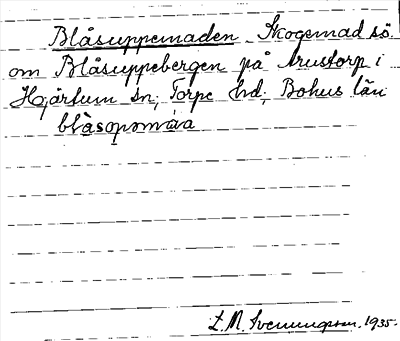 Blåsuppemaden. Skogsmad sö.
om Blåsuppebergen på Arustorp i
Hjärtum sn; Torpe hd; Bohus län
blåsopomáa
L. M. Svenungsson. 1935.